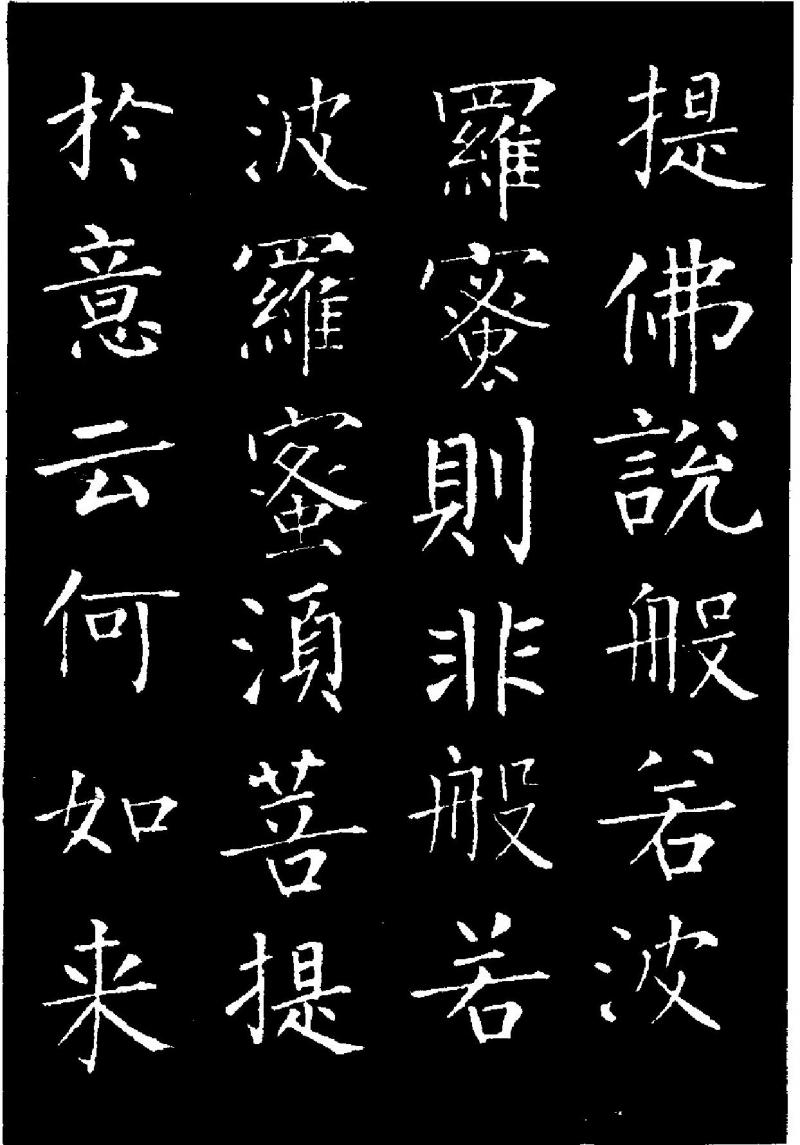 提佛說般若波
羅蜜則非般若
波羅蜜須菩提
於意云何如来